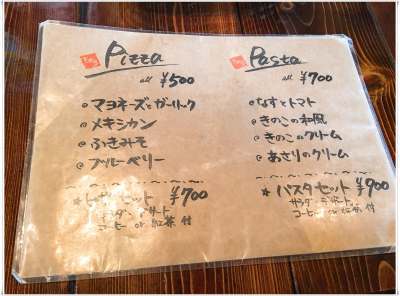 Pizza
all ¥500
@ マヨネーズとガーリック
@ メキシカン
@ ふきみそ
@ ブルーベリー
¥700
サラダ・デザート
コーヒー or 紅茶 付
Pasta
all ¥700
@ なすとトマト
@ きのこの和風
@ きのこのクリーム
@ あさりのクリーム
★ パスタセット ¥900
サラダ・デザート
コーヒー or 紅茶 付